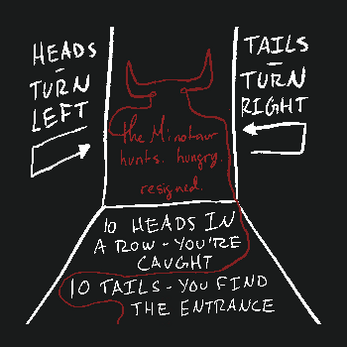 HEADS
-
TURN
LEFT
TAILS
-
TURN
RIGHT
the Minotaur
hunts. hungry.
resigned.
10 HEADS IN
A ROW - YOU'RE
CAUGHT
10 TAILS - YOU FIND
THE ENTRANCE